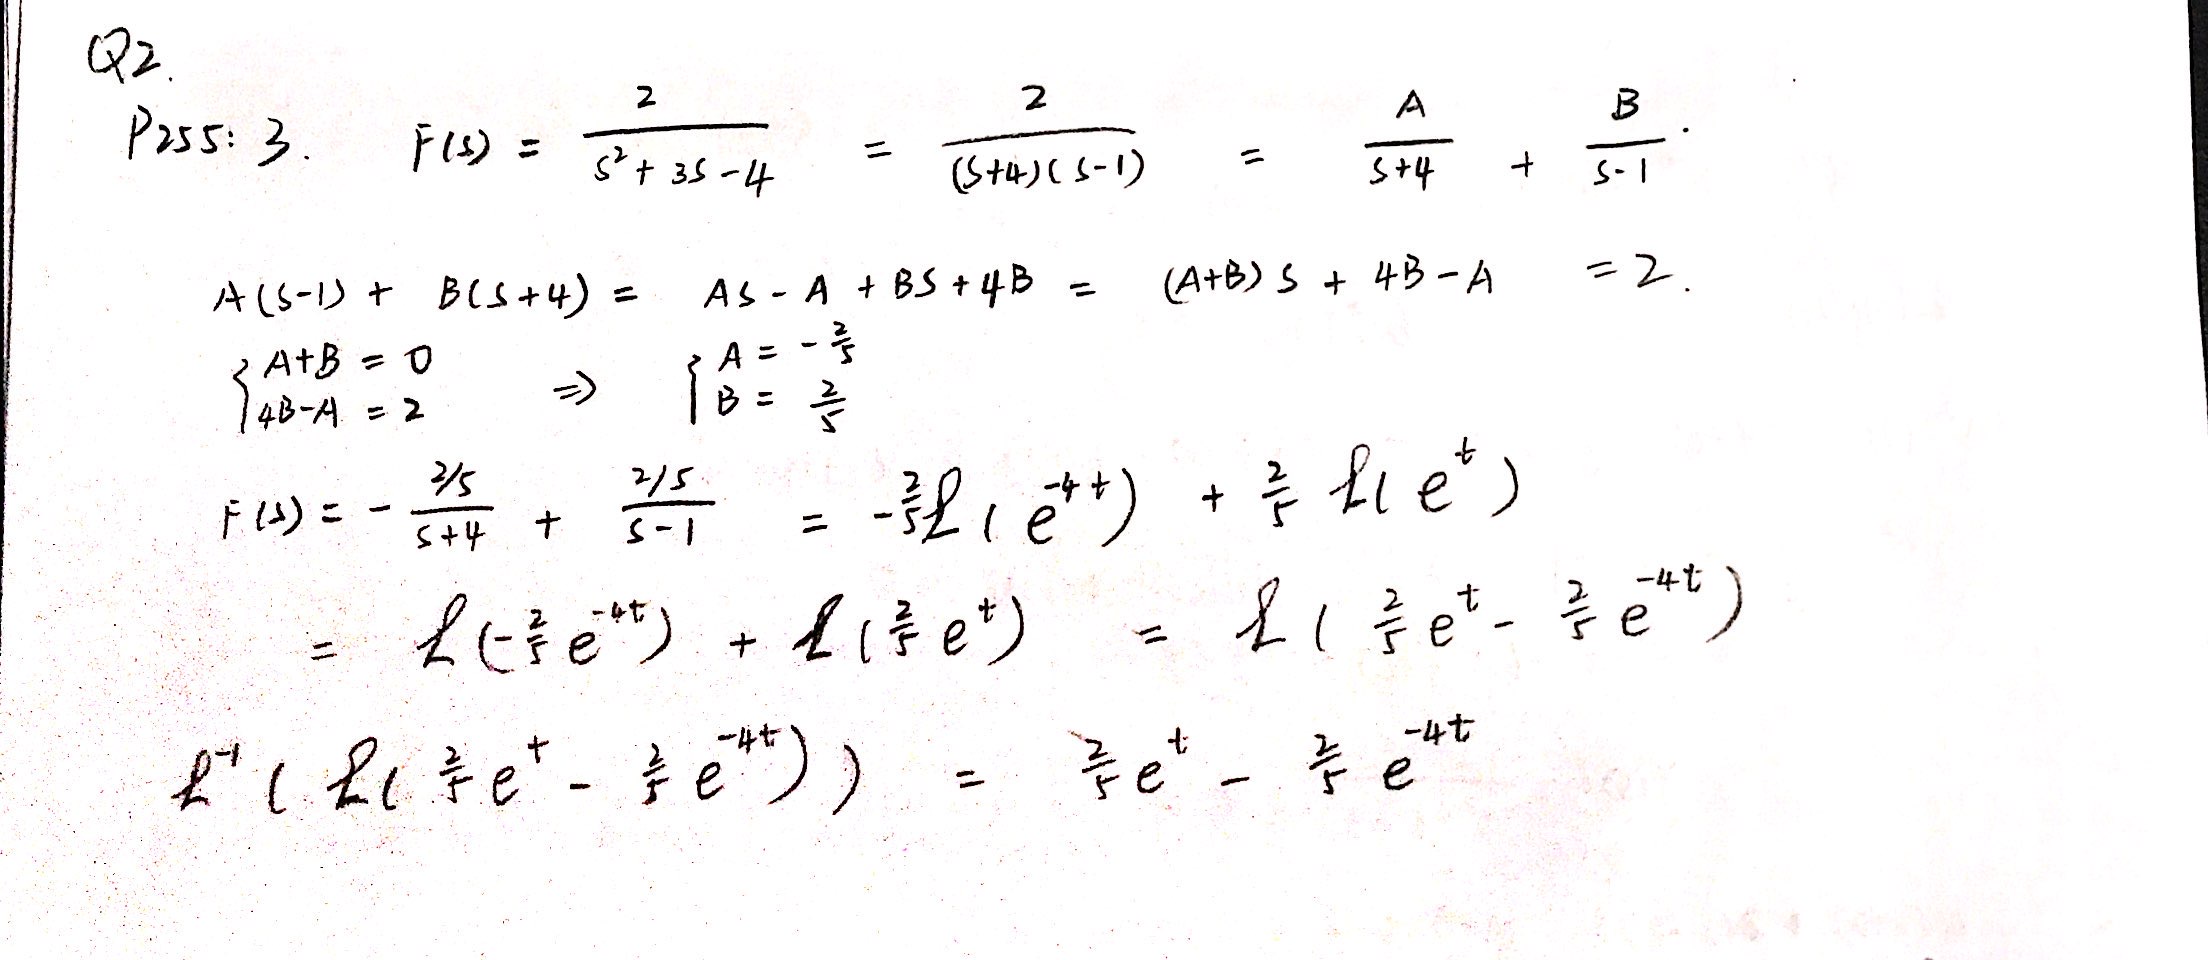 Q2.
P255: 3. F(s) = 2/(s²+3s-4) = 2/((s+4)(s-1)) = A/(s+4) + B/(s-1).
A(s-1) + B(s+4) = As - A + Bs + 4B = (A+B)s + 4B-A = 2.
{A+B = 0 ⇒ {A = -2/5
{4B-A = 2 {B = 2/5
F(s) = - (2/5)/(s+4) + (2/5)/(s-1) = -2/5 ℒ(e^{-4t}) + 2/5 ℒ(e^t)
= ℒ(-2/5 e^{-4t}) + ℒ(2/5 e^t) = ℒ(2/5 e^t - 2/5 e^{-4t})
ℒ^{-1}(ℒ(2/5 e^t - 2/5 e^{-4t})) = 2/5 e^t - 2/5 e^{-4t}